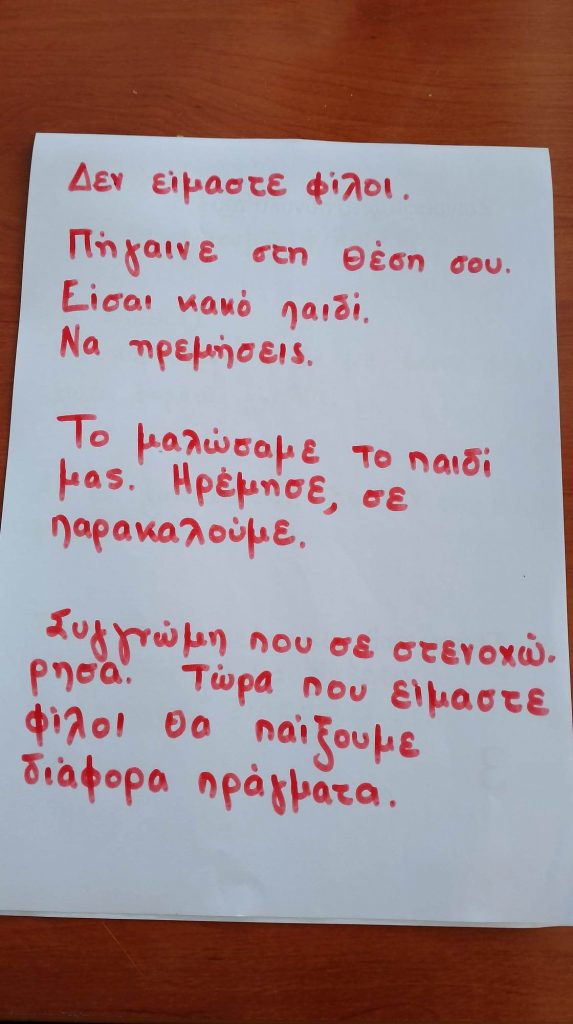 Δεν είμαστε φίλοι.
Πήγαινε στη θέση σου.
Είσαι κακό παιδί.
Να ηρεμήσεις.
Το μαλώσαμε το παιδί
μας. Ηρέμησε, σε
παρακαλούμε.
Συγγνώμη που σε στενοχώ.
ρησα. Τώρα που είμαστε
φίλοι θα παίξουμε
διάφορα πράγματα.